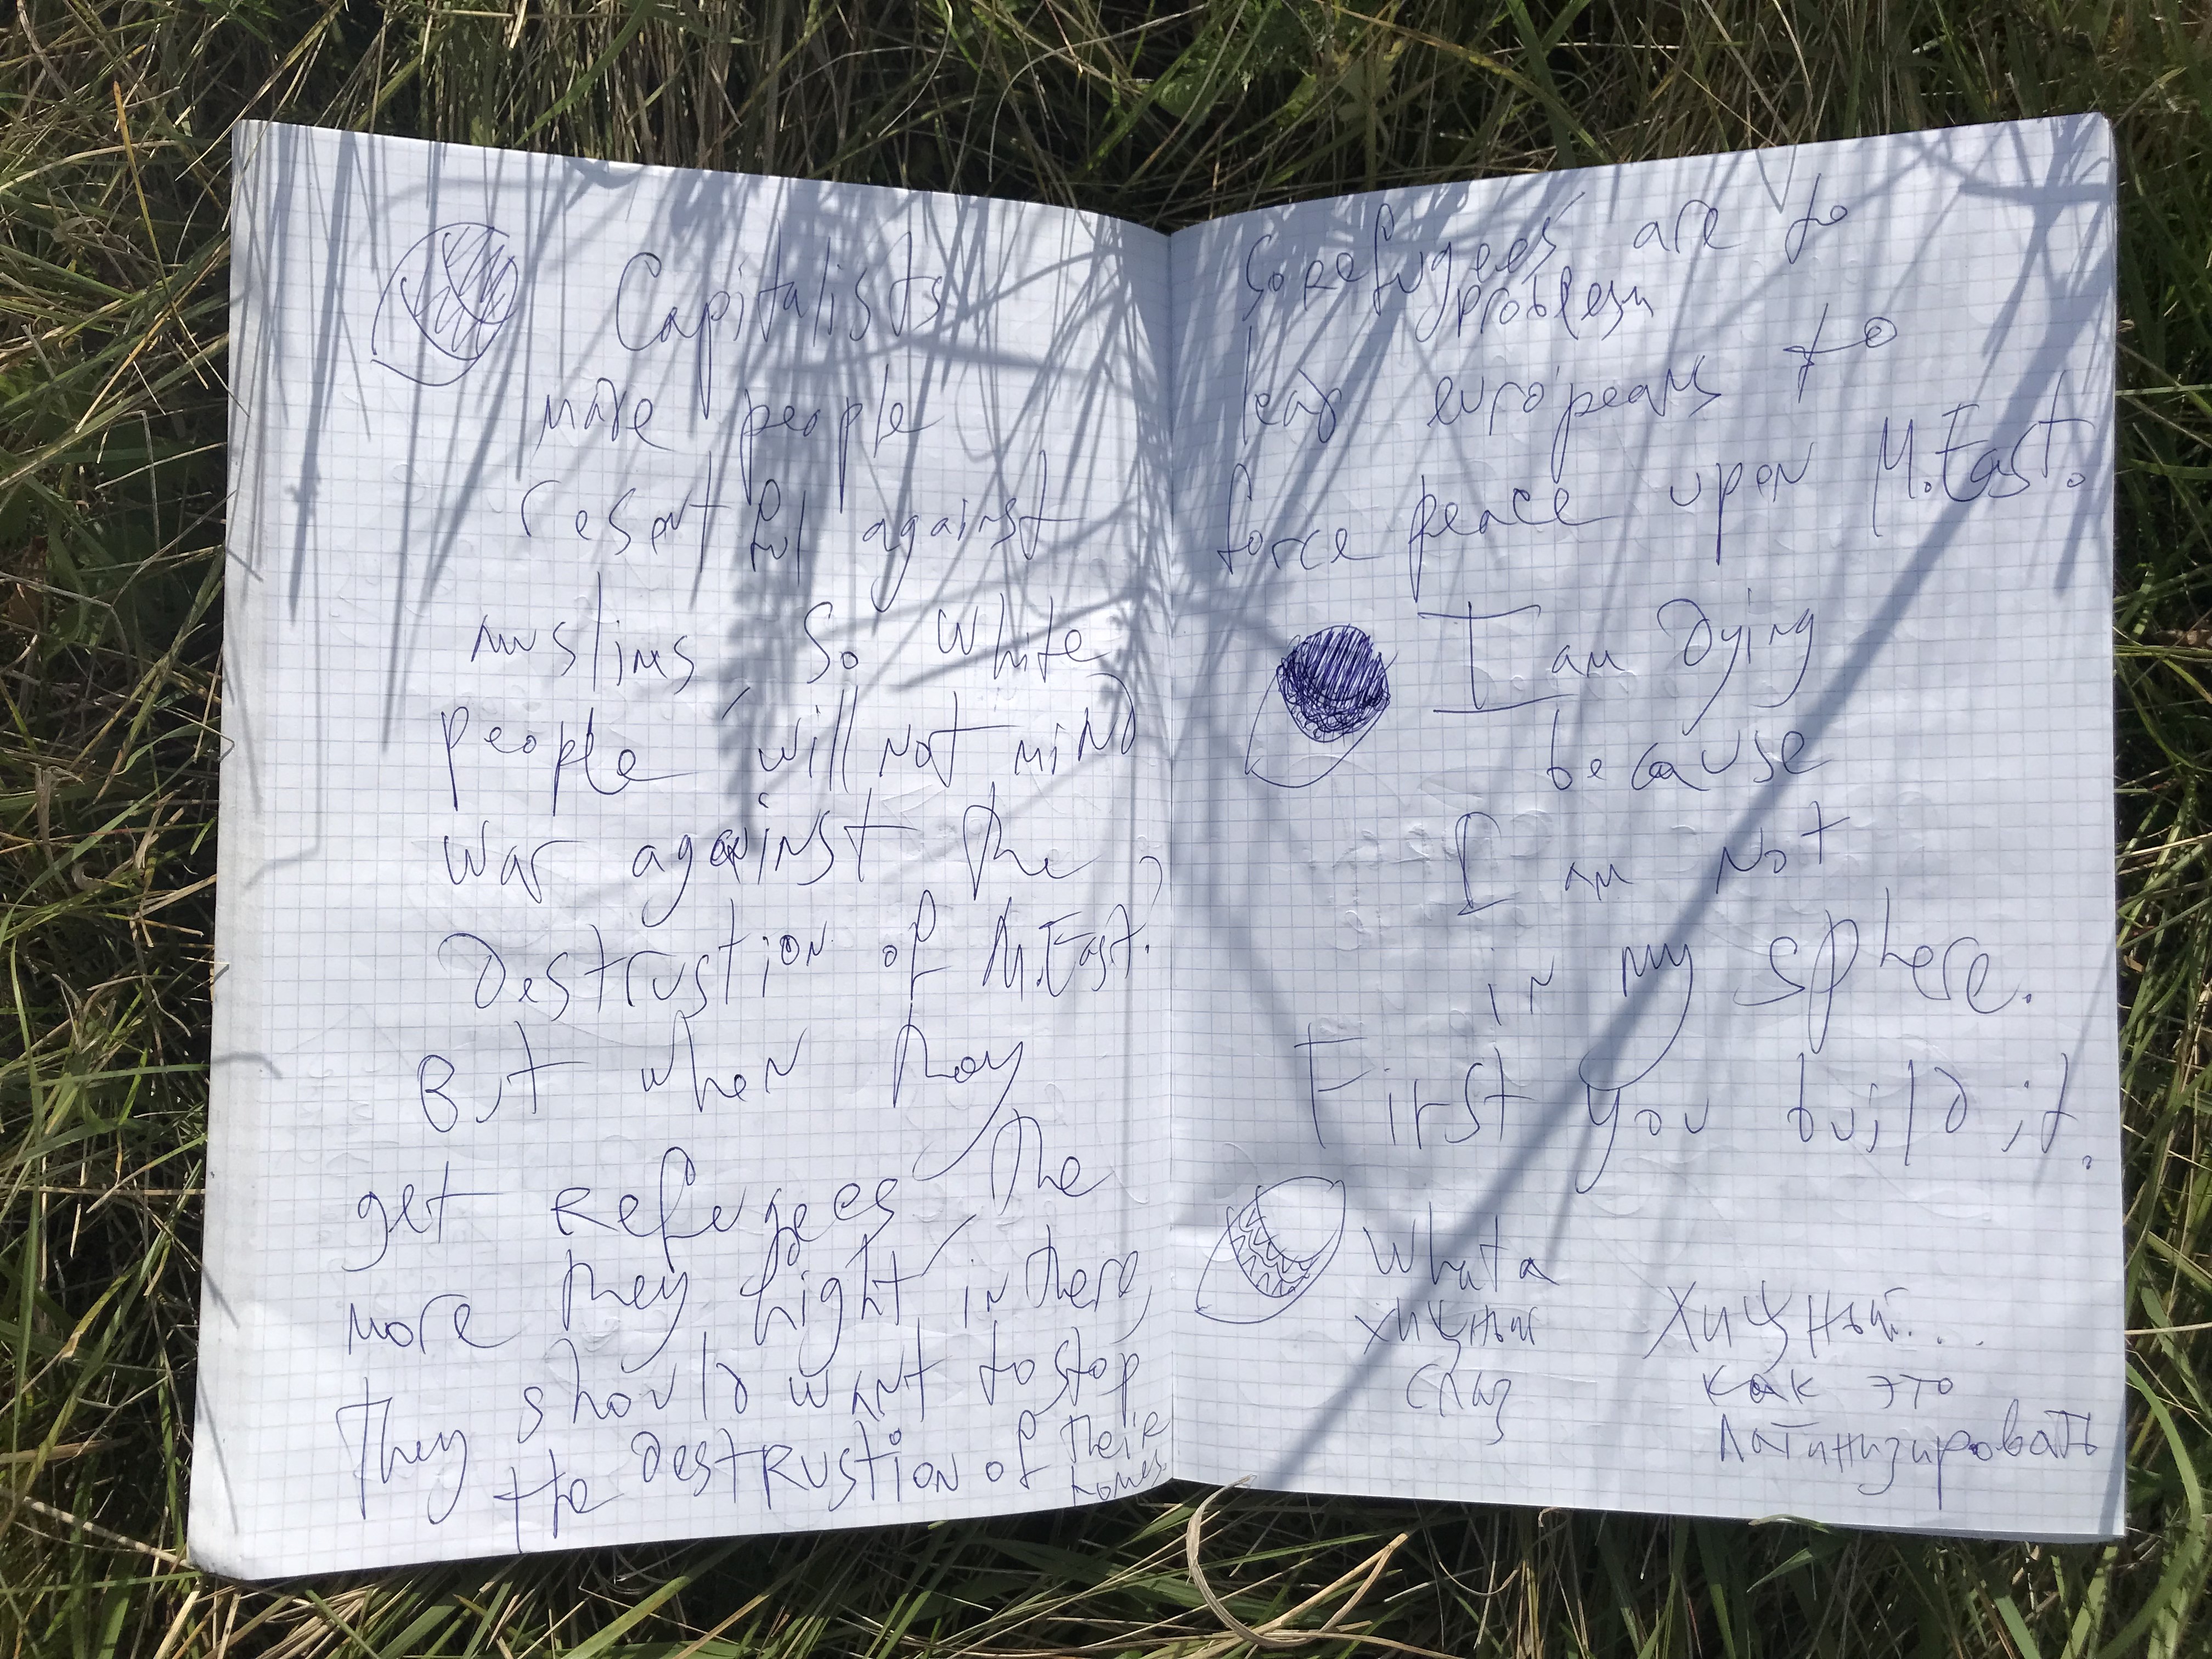 Capitalists
make people
resentful against
muslims, so white
people will not mind
war against the
destrustion of M.East.
But when they
get Refuegees, the
more they hight in there,
They should want to stop
the destRustion of their
homes
So Refugees are
problem
lend europeans to
force peace upon M.East.
I am dying
because
I am not
in my sphere.
First you build it.
What a
хищный
City
Хищный...
как это
латинизировать